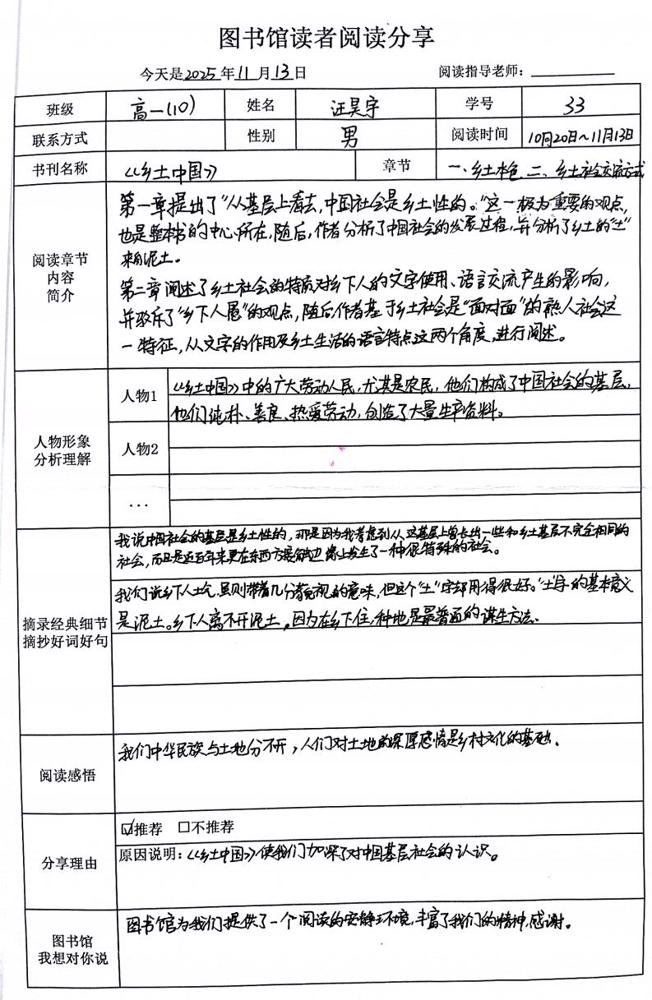 图书馆读者阅读分享
今天是2025年11月13日 阅读指导老师：
班级 高一(10) 姓名 汪昊宇 学号 33
联系方式 性别 男 阅读时间 10月20日~11月13日
书刊名称 《乡土中国》 章节 一、乡土本色 二、乡土社会交流方式
阅读章节
内容
简介
第一章提出了"从基层上看去，中国社会是乡土性的。"这一极为重要的观点，
也是整本书的中心所在，随后，作者分析了中国社会的发展过程，并分析了乡土的"土"
来自泥土。
第二章阐述了乡土社会的特点对乡下人的文字使用、语言交流产生的影响，
并驳斥了"乡下人愚"的观点，随后作者基于乡土社会是"面对面"的熟人社会这
一特征，从文字的作用及乡土生活的语言特点这两个角度，进行阐述。
人物形象
分析理解
人物1
《乡土中国》中的广大劳动人民，尤其是农民，他们构成了中国社会的基层，
他们纯朴、善良、热爱劳动，创造了大量生产资料。
人物2
...
摘录经典细节
摘抄好词好句
我说中国社会的基层是乡土性的，那是因为我考虑到从这基层上曾长出一些和乡土基层不完全相同的
社会，而且是近百年来更在东西方接触边缘上发生了一种很特殊的社会。
我们说乡下人土气，虽则带着几分藐视的意味，但这个"土"字却用得很好。"土"字的基本意义
是泥土。乡下人离不开泥土，因为在乡下住，种地是最普通的谋生方法。
阅读感悟
我们中华民族与土地分不开，人们对土地的深厚感情是乡村文化的基础。
分享理由
☑推荐 □不推荐
原因说明：《乡土中国》使我们加深了对中国基层社会的认识。
图书馆
我想对你说
图书馆为我们提供了一个阅读的安静环境，丰富了我们的精神，感谢。